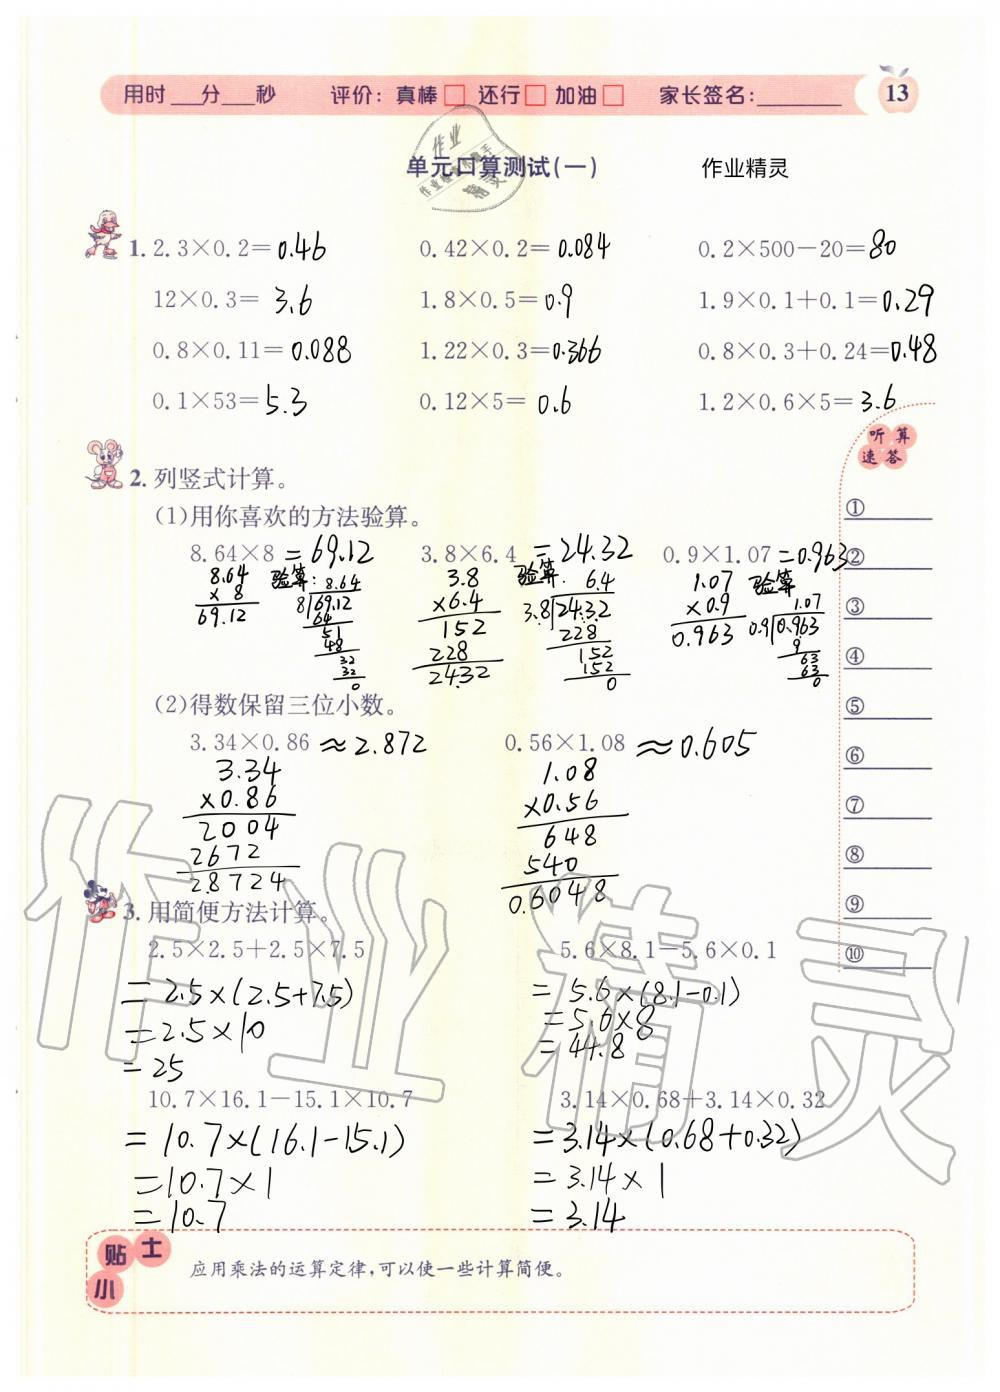 用时___分___秒 评价：真棒□ 还行□ 加油□ 家长签名：_______ 13
单元口算测试(一) 作业精灵
1. 2.3×0.2=0.46 0.42×0.2=0.084 0.2×500-20=80
12×0.3=3.6 1.8×0.5=0.9 1.9×0.1+0.1=0.29
0.8×0.11=0.088 1.22×0.3=0.366 0.8×0.3+0.24=0.48
0.1×53=5.3 0.12×5=0.6 1.2×0.6×5=3.6
听算
速答
①
②
③
④
⑤
⑥
⑦
⑧
⑨
⑩
2. 列竖式计算。
(1)用你喜欢的方法验算。
8.64×8=69.12 3.8×6.4=24.32 0.9×1.07=0.963
8.64 验算: 8.64 3.8 验算. 6.4 1.07 验算
×8 8)69.12 ×6.4 3.8)24.32 ×0.9 1.07
69.12 64 152 228 0.963 0.9)0.963
51 228 152 9
48 24.32 152 63
32 0 63
32 0
0
(2)得数保留三位小数。
3.34×0.86≈2.872 0.56×1.08≈0.605
3.34 1.08
×0.86 ×0.56
2004 648
2672 540
2.8724 0.6048
3. 用简便方法计算。
2.5×2.5+2.5×7.5 5.6×8.1-5.6×0.1
=2.5×(2.5+7.5) =5.6×(8.1-0.1)
=2.5×10 =5.6×8
=25 =44.8
10.7×16.1-15.1×10.7 3.14×0.68+3.14×0.32
=10.7×(16.1-15.1) =3.14×(0.68+0.32)
=10.7×1 =3.14×1
=10.7 =3.14
小贴士
应用乘法的运算定律,可以使一些计算简便。
作业精灵